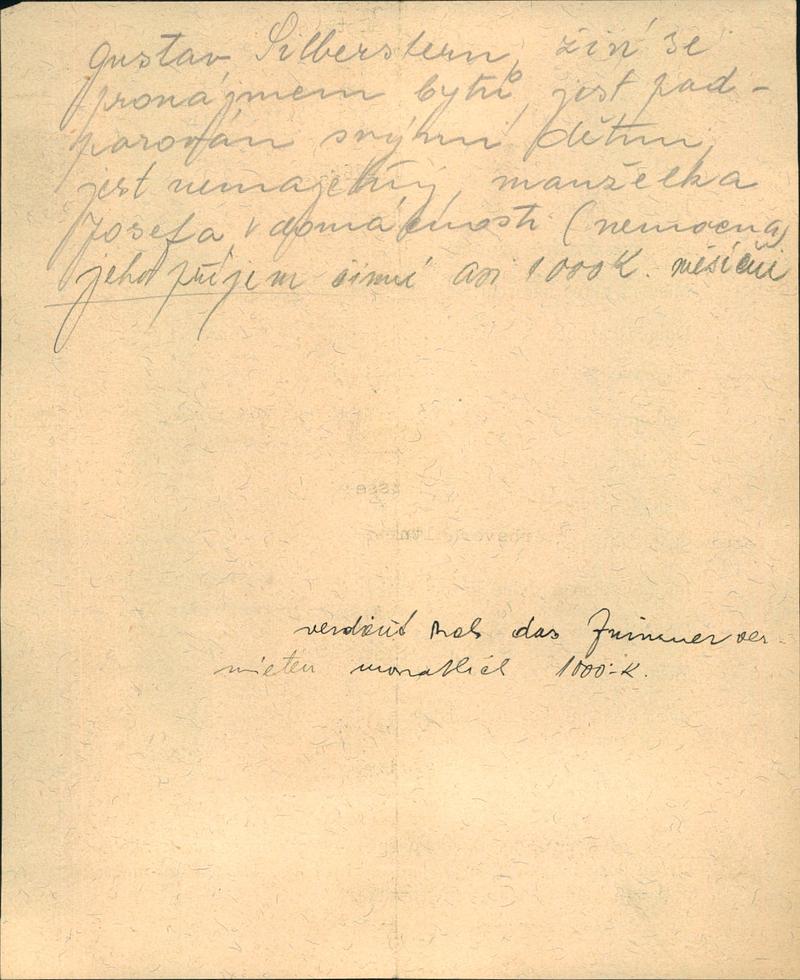 Gustav Silberstern, živí se
pronájmem bytů, jest pod-
porován svými dětmi,
jest nemajetný, manželka
Josefa, v domácnosti (nemocna)
jeho příjem činí asi 1000 K. měsíčně
verdient das Zimmerver-
mieten monatlich 1000.-K.